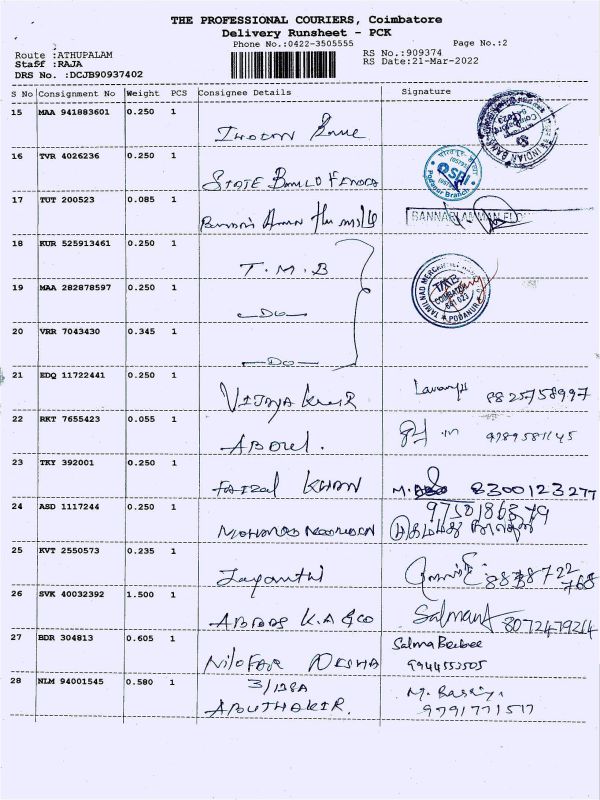 THE PROFESSIONAL COURIERS, Coimbatore
Delivery Runsheet - PCK
Phone No.:0422-3505555 Page No.:2
Route :ATHUPALAM RS No.:909374
Staff :RAJA RS Date:21-Mar-2022
DRS No. :DCJB90937402
S No Consignment No Weight PCS Consignee Details Signature
15 MAA 941883601 0.250 1
INDIAN
16 TVR 4026236 0.250 1
STATE
Podanur Branch
17 TUT 200523 0.085 1
BANNARI AMMAN
18 KUR 525913461 0.250 1
T.M.B
TAMILNAD MERCANTILE
TMB
COIMBATORE
641 023
PODANUR
19 MAA 282878597 0.250 1
-Do-
20 VRR 7043430 0.345 1
-Do-
21 EDQ 11722441 0.250 1
VIJAYA 8825758997
22 RKT 7655423 0.055 1
ABDUL. 9789581145
23 TKY 392001 0.250 1
FAIZAL KHAN M. 8300123277
24 ASD 1117244 0.250 1
9750186879
25 KVT 2550573 0.235 1
Jayanthi
26 SVK 40032392 1.500 1
ABBAS K.A & CO Salman 8072479214
27 BDR 304813 0.605 1
Salma Beebee
NILOFAR NISHA 9944553505
28 NLM 94001545 0.580 1
3/128A M.
ABUTHAKIR. 9791771517